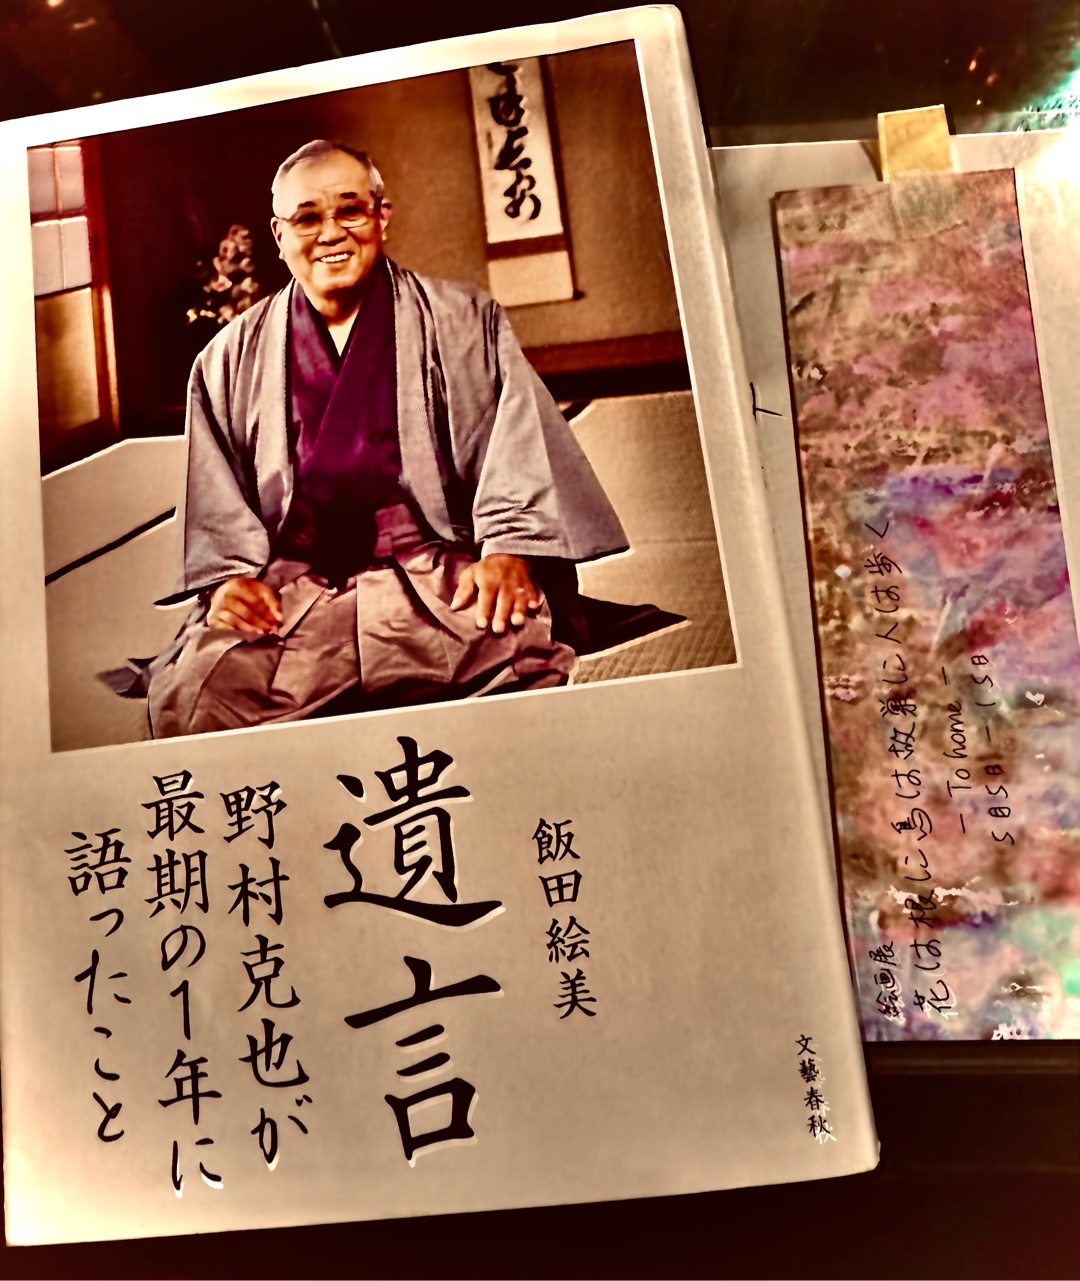 飯田絵美
遺言
野村克也が
最期の1年に
語ったこと
文藝春秋
絵画展
花は根に鳥は故巣に人は歩く
— To home —
5月5日 — 15日